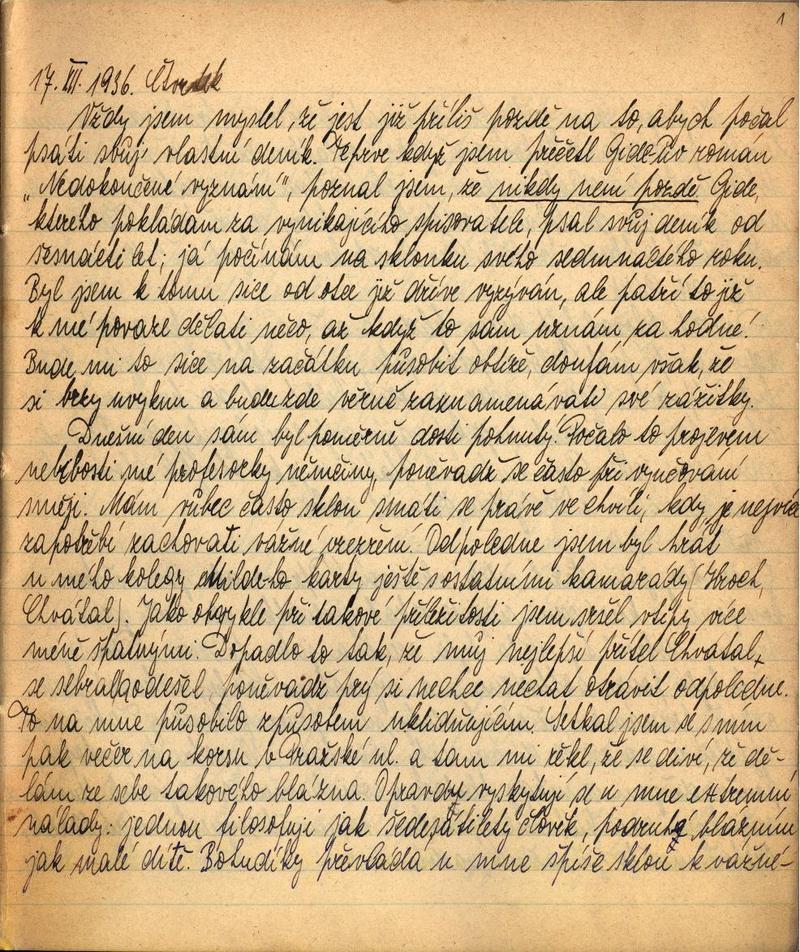 1
17. III. 1936. Čtvrtek
Vždy jsem myslel, že jest již příliš pozdě na to, abych počal
psáti svůj vlastní deník. Teprve když jsem přečetl Gide-ův roman
„Nedokončené vyznání", poznal jsem, že nikdy není pozdě Gide,
kterého pokládám za vynikajícího spisovatele, psal svůj deník od
šesnácti let; já počínám na sklonku svého sedmnáctého roku.
Byl jsem k tomu sice od otce již dříve vyzýván, ale patří to již
k mé povaze dělati něco, až když to sám uznám za hodné!
Bude mi to sice na začátku působit obtíže, doufám však, že
si brzy uvyknu a budu zde věrně zaznamenávati své zážitky.
Dnešní den sám byl poměrně dosti pohnutý. Počalo to projevem
nelibosti mé profesorky němčiny, poněvadž se často při vyučování
směji. Mám vůbec často sklon smáti se právě ve chvíli, kdy je nejvíce
zapotřebí zachovati vážné vzezření. Odpoledne jsem byl hrát
u mého kolegy Mildeho karty ještě s ostatními kamarády (Hroch,
Chvátal). Jako obvykle při takové příležitosti jsem sršel vtipy více
méně špatnými. Dopadlo to tak, že můj nejlepší přítel Chvatal,
se sebral a odešel, poněvadž prý si nechce nechat otrávit odpoledne.
To na mne působilo způsobem uklidňujícím. Setkal jsem se s ním
pak večer na korsu v Pražské ul. a tam mi řekl, že se diví, že dě-
lám ze sebe takového blázna. Opravdu vyskytují se u mne extremní
nálady: jednou filosofuji jak šedesátiletý člověk, podruhé blázním
jak malé dítě. Bohudíky převládá u mne spíše sklon k vážné-